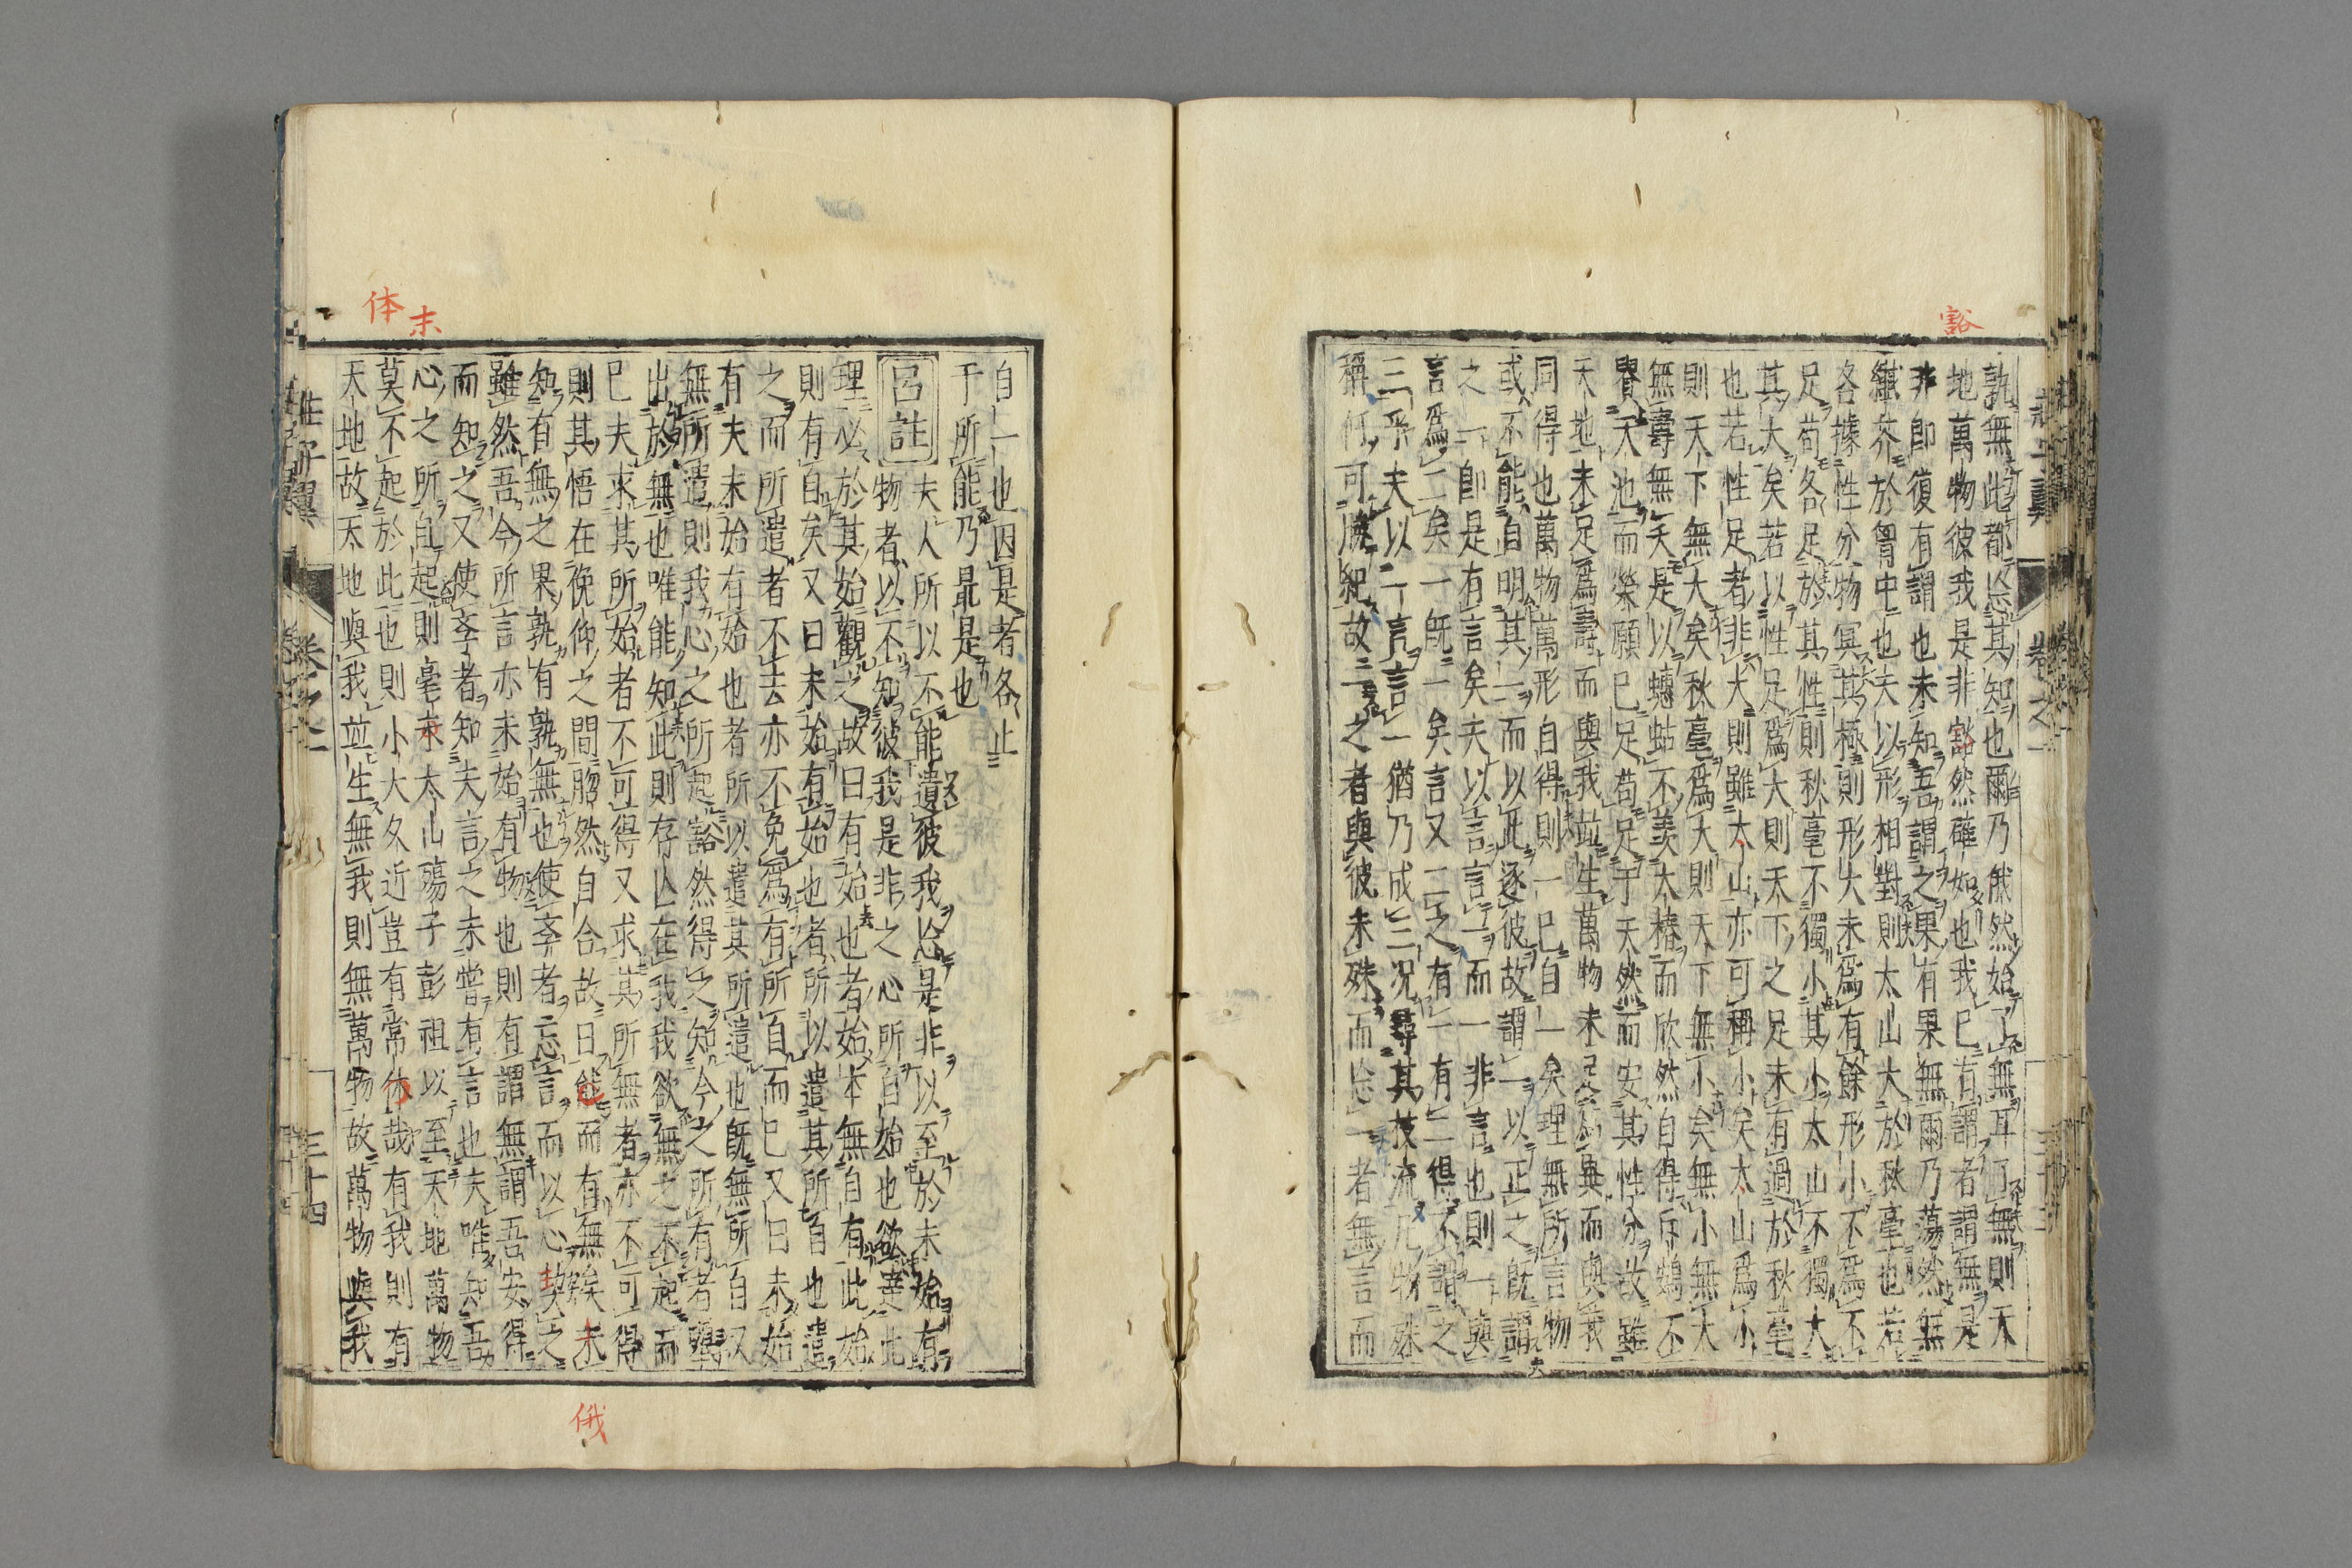 豁
孰無此都忘其知也爾乃俄然始了無耳了無則天
地萬物彼我是非豁然確如也我已有謂者謂無是
非卽復有謂也未知吾謂之果有果無爾乃蕩然無
纖芥於胷中也夫以形相對則太山大於秋毫也若
各據性分物冥其極則形大未爲有餘形小不爲不
足苟各足於其性則秋毫不獨小其小太山不獨大
其大矣若以性足爲大則天下之足未有過於秋毫
也若性足者非大則雖太山亦可稱小矣太山爲小
則天下無大矣秋毫爲大則天下無小矣無小無大
無壽無夭是以蟪蛄不羨大椿而欣然自得斥鴳不
貴天池而榮願已足苟足于天然而安其性分故雖
天地未足爲壽而與我並生萬物未足爲異而與我
同得也萬物萬形自得則一已自一矣理無所言物
或不能自明其一而以此逐彼故謂一以正之旣謂
之一卽是有言矣夫以言言一而一非言也則一與
言爲二矣一旣一矣言又二之有一有二得不謂之
三乎夫以一言言一猶乃成三况尋其枝流凡物殊
稱何可勝紀故二之者與彼未殊而忘一者無言而
莊子翼
卷之二
体
末
自一也因是者各止
于所能乃最是也
呂註
夫人所以不能遺彼我忘是非以至於未始有
物者以不知彼我是非之心所自始也欲達此
理必於其始觀之故曰有始也者始本無自有此始
則有自矣又曰未始有始也者所以遣其所自也遣
之而所遣者不去亦不免爲有所自而已又曰未始
有夫未始有始也者所以遣其所遣也旣無所自又
無所遣則我心之所起豁然得之知今之所有者舉
出於無也唯能知此則存亡在我我欲無之不起而
已夫求其所始者不可得又求其所無者亦不可得
則其悟在俛仰之間脗然自合故曰俄而有無矣未
知有無之果孰有孰無也使學者忘言而以心契之
雖然吾今所言亦未始有物也則有謂無謂吾安得
而知之又使學者知夫言之未嘗有言也夫唯知吾
心之所自起則毫末太山殤子彭祖以至天地萬物
莫不起於此也則小大久近豈有常体哉有我則有
天地故天地與我並生無我則無萬物故萬物與我
莊子翼
卷之二
三十四
俄